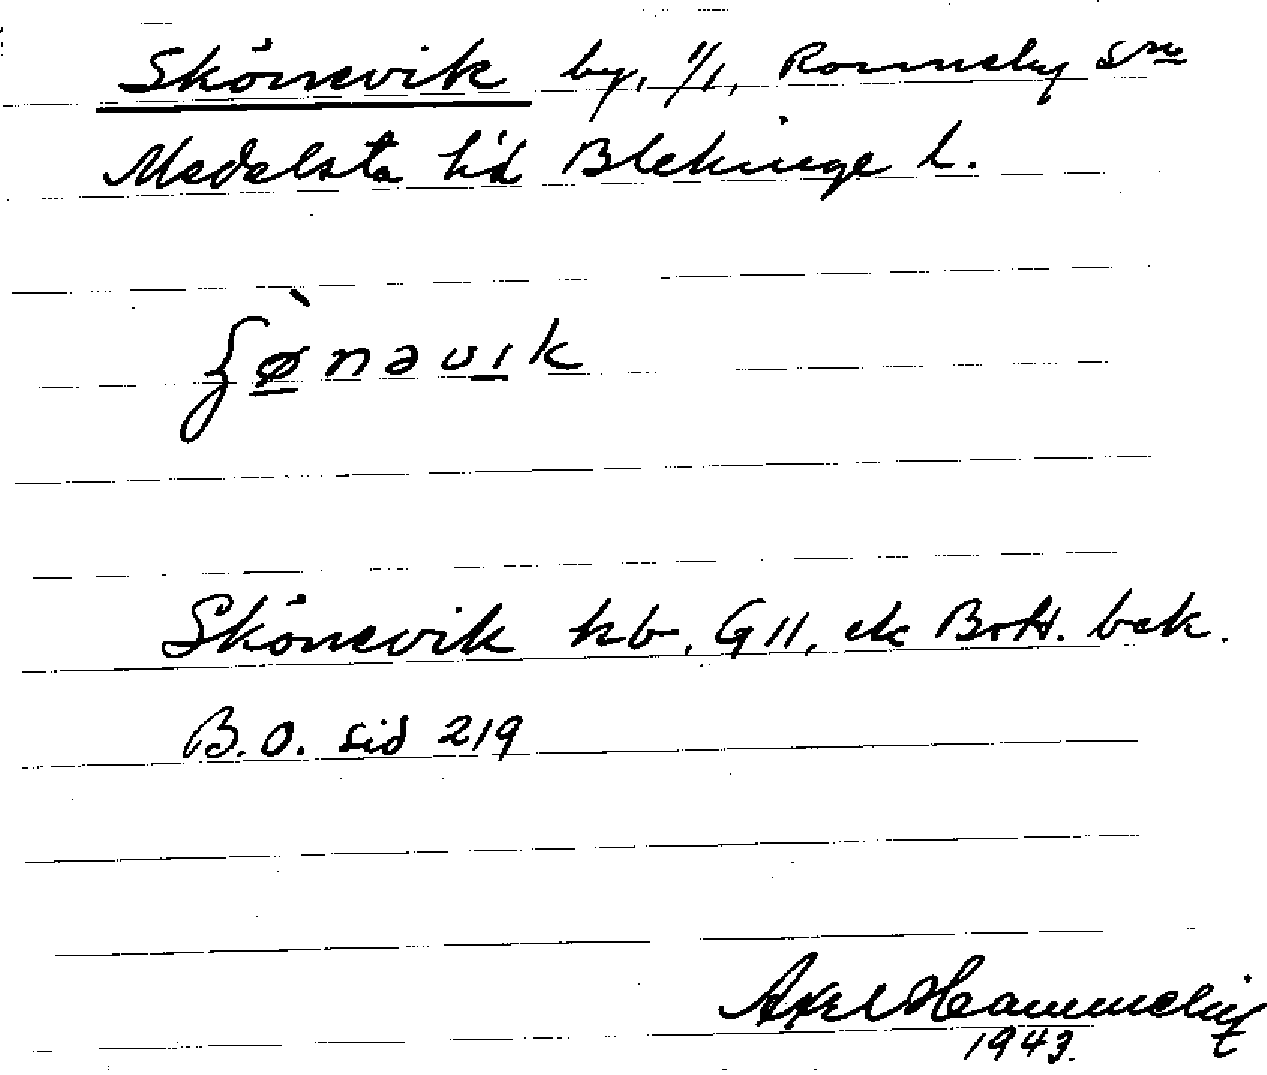 Skönevik by, 1/1, Ronneby sn
Medelsta hd Blekinge l.
ʃø̀nəvik
Skönevik kb, G11, ek Bott. bek.
B.O. sid 219
Axel
1943.